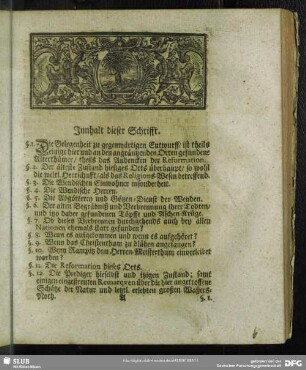 Innhalt dieser Schrifft.
§. 1. Die Gelegenheit zu gegenwärtigen Entwurff, ist theils
einige hier und an den angräntzenden Orten gefundene
Alterthümer, theils das Andencken der Reformation.
§. 2. Der älteste Zustand hiesiges Orts überhaupt, so wohl
die weltl. Herrschafft als das Religions-Wesen betreffend.
§. 3. Die Wendischen Einwohner insonderheit.
§. 4. Die Wendische Herren.
§. 5. Die Abgötterey und Götzen-Dienst der Wenden.
§. 6. Der alten Begräbniß und Verbrennung ihrer Todten,
und itzo daher gefundenen Töpffe und Aschen-Krüge.
§. 7. Ob dieses Verbrennen durchgehends auch bey allen
Nationen ehemals statt gefunden?
§. 8. Wenn es aufgekommen und wenn es aufgehöret?
§. 9. Wenn das Christenthum zu blühen angefangen?
§. 10. Wenn Rampitz dem Herren-Meisterthum einverleibet
worden?
§. 11. Die Reformation dieses Orts.
§. 12. Die Prediger hieselbst und itzigen Zustand; samt
einigen eingestreuten von über die hier angetroffene
Schätze der Natur und letzt erlebten grossen Wassers-
Noth.
A §. 1.
SLUB
Wir führen Wissen.
DFG